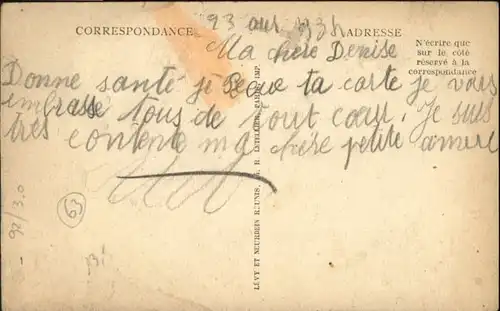 CORRESPONDANCE
ADRESSE
N'écrire que
sur le côté
réservé à la
correspondance
23 1935
Ma chère Denise
Donne santé je ta carte je vous
embrasse tous de tout cœur. Je suis
très contente ma chère petite
63
92/3.0
LÉVY ET NEURDEIN RÉUNIS, PARIS